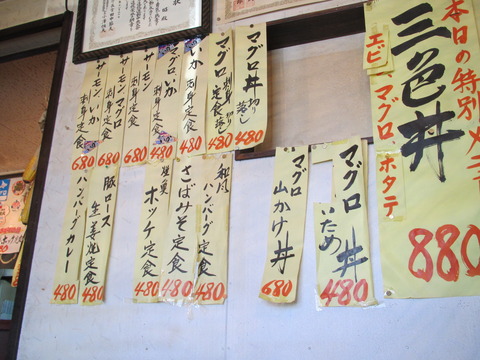 本日の特別メニュー
三色丼
エビ、マグロ、ホタテ
880
マグロ丼 切り落し
480
マグロ 刺身定食 切り落し
480
いか 刺身定食
480
マグロ、いか 刺身定食
サーモン 刺身定食
680
サーモン マグロ 刺身定食
680
サーモン、いか 刺身定食
680
マグロ いため丼
480
マグロ 山かけ丼
680
和風 ハンバーグ定食
480
さばみそ定食
480
ホッケ定食
480
豚ロース 生姜焼定食
480
ハンバーグカレー
480